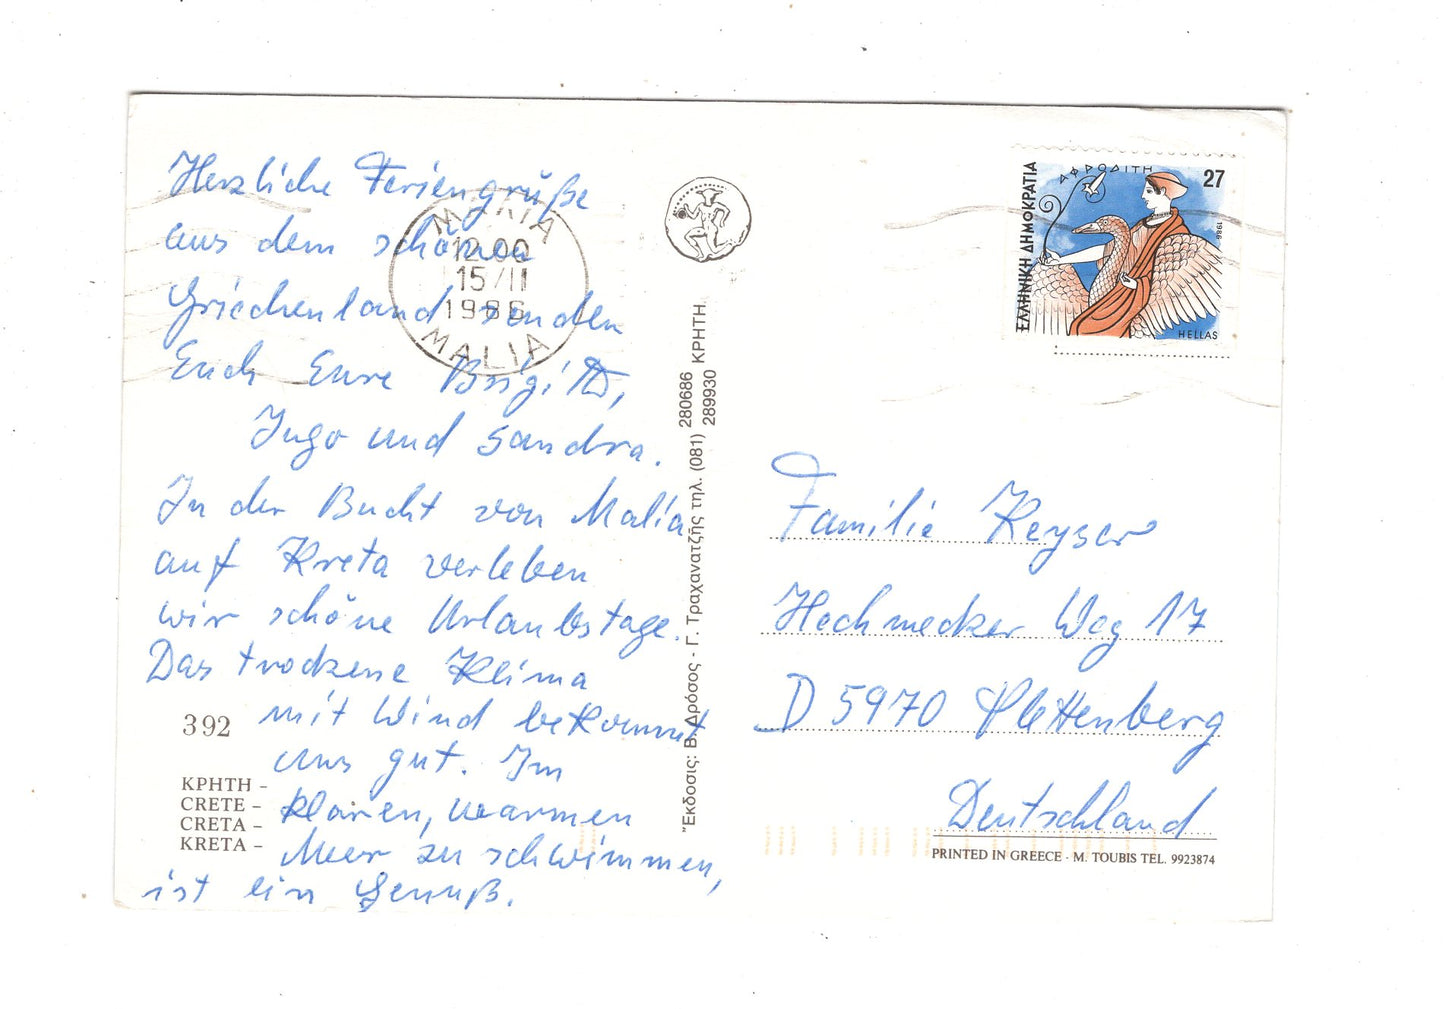 Herzliche Feriengrüße
aus dem schönen
Griechenland senden
Euch Eure Brigitte,
Ingo und Sandra.
In der Bucht von Malia
auf Kreta verleben
wir schöne Urlaubstage.
Das trockene Klima
mit Wind bekommt
uns gut. Im
klaren, warmen
Meer zu schwimmen,
ist ein Genuß.
392
ΚΡΗΤΗ -
CRETE -
CRETA -
KRETA -
ΜΑΛΙΑ
12.00
15/II
1986
MALIA
"Εκδοσις: Β. Δρόσος - Γ. Τραχανατζῆς τηλ. (081) 280686
289930 ΚΡΗΤΗ.
ΕΛΛΗΝΙΚΗ ΔΗΜΟΚΡΑΤΙΑ
ΑΦΡΟΔΙΤΗ
27
1986
HELLAS
Familie Keyser
Hechmecker Weg 17
D 5970 Plettenberg
Deutschland
PRINTED IN GREECE - M. TOUBIS TEL. 9923874